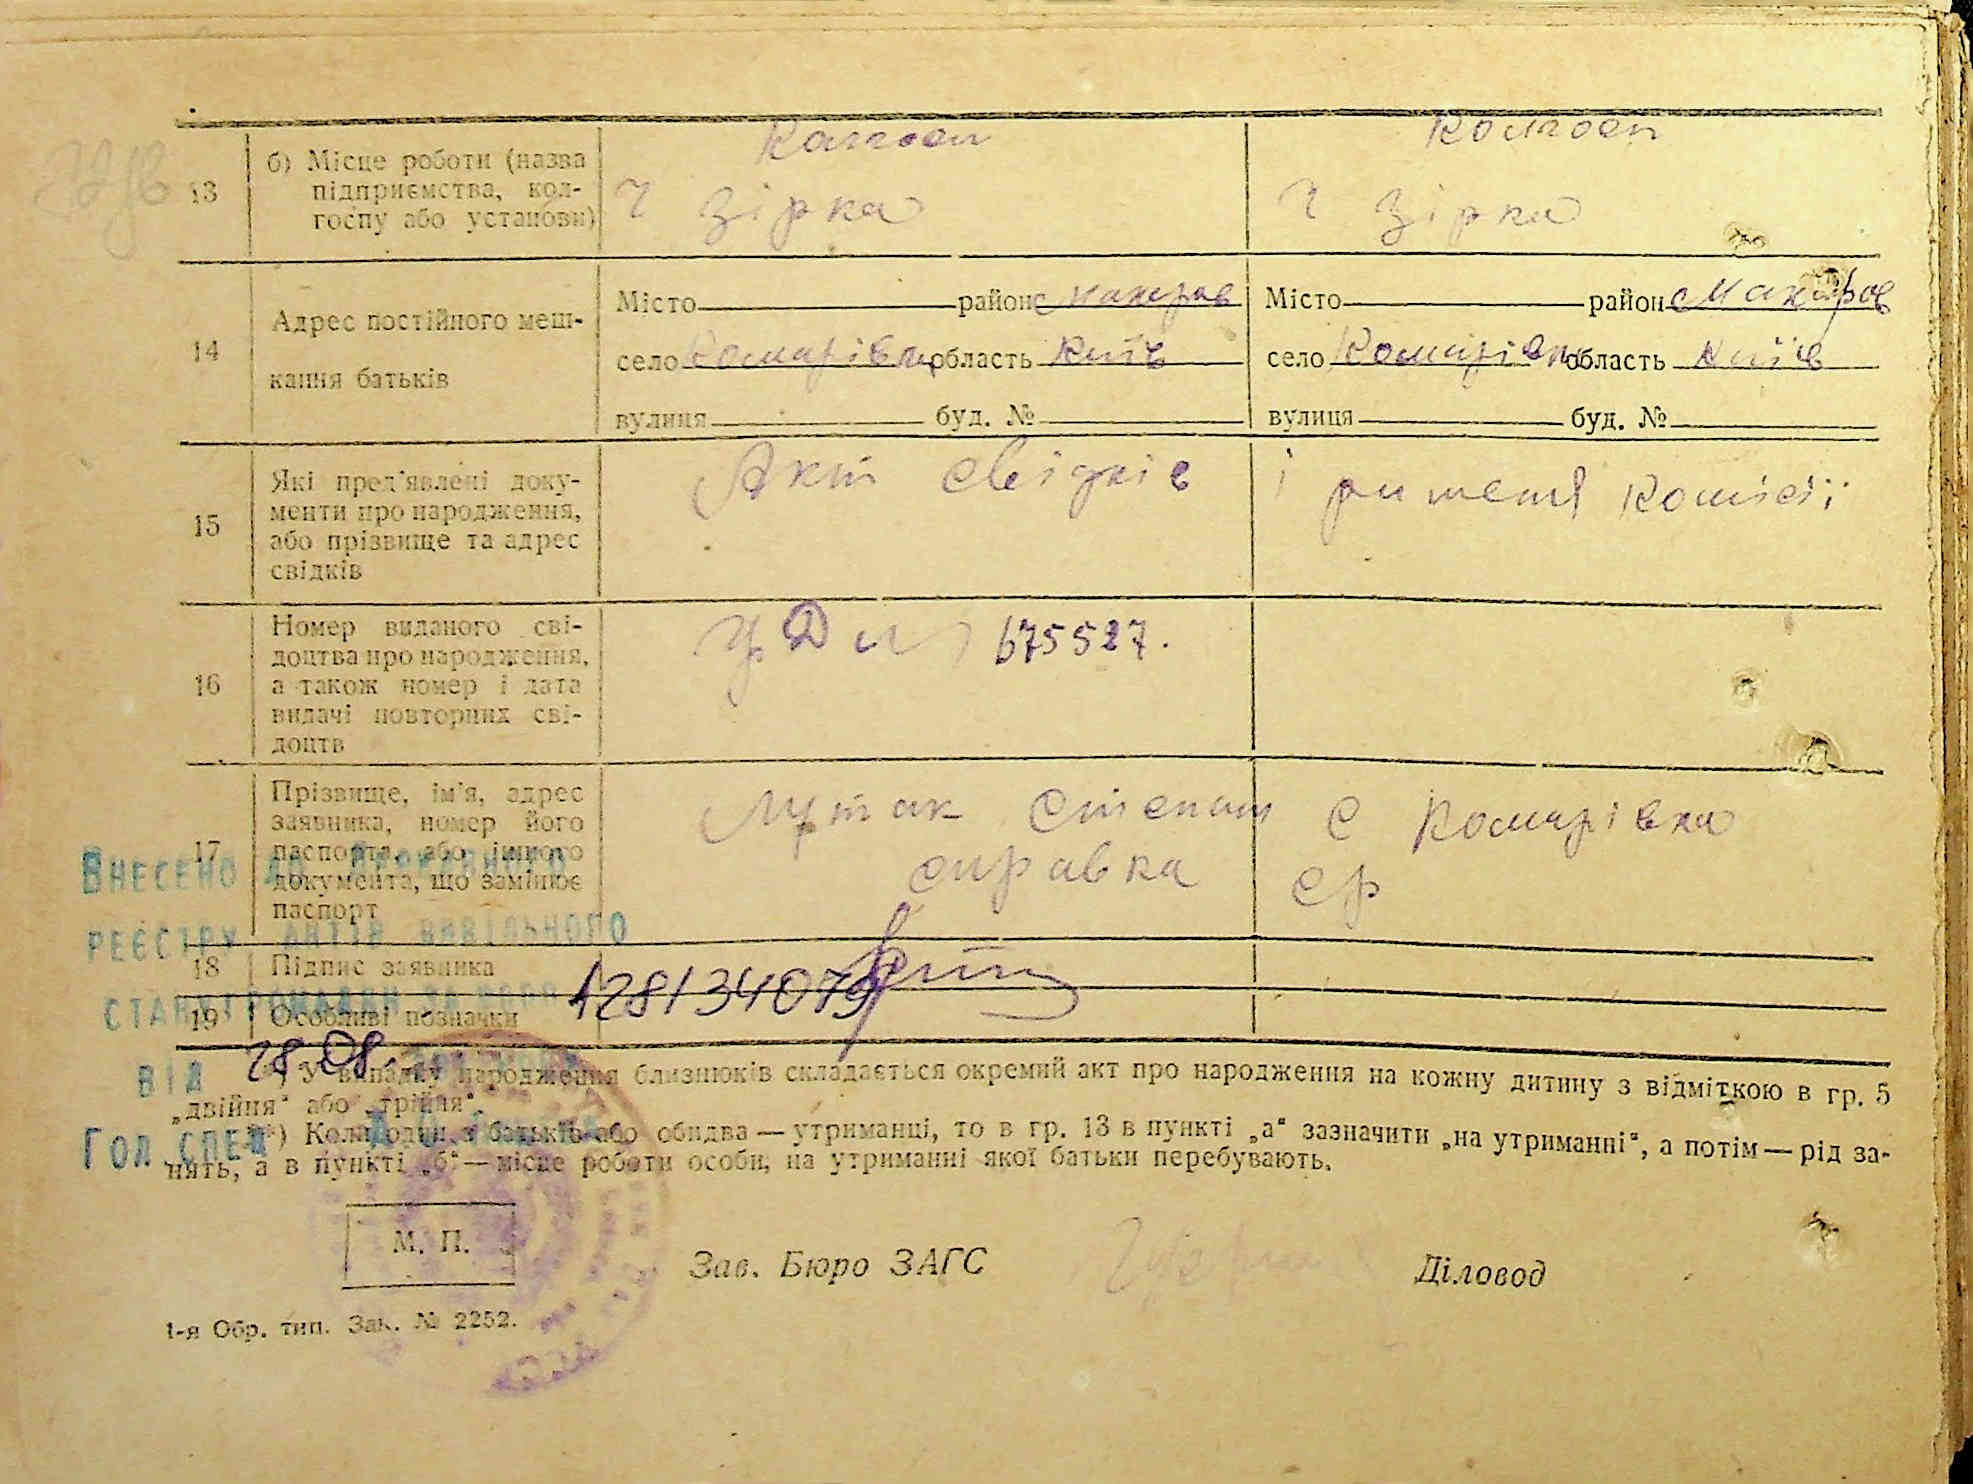 Колгосп Колгосп
13 б) Місце роботи (назва
підприємства, кол-
госпу або установи)
Ч зірка Ч зірка
Місто район Макарів Місто район Макаров
14 Адрес постійного меш-
кання батьків
село Комарівка область Київ село Комарівка область Київ
вулиця буд. № вулиця буд. №
15 Які пред'явлені доку-
менти про народження,
або прізвище та адрес
свідків
Акт свідків і комісії
16 Номер виданого сві-
доцтва про народження,
а також номер і дата
видачі повторних сві-
доцтв
675527.
17 Прізвище, ім'я, адрес
заявника, номер його
паспорта, або іншого
документа, що замінює
паспорт
Степан с Комарівка
справка ср
Внесено до Державного
реєстру актів цивільного
стану громадян за
18 Підпис заявника
19 Особливі позначки
128134079
від 28.08.
*) У випадку народження близнюків складається окремий акт про народження на кожну дитину з відміткою в гр. 5
„двійня“ або „трійня“.
**) Коли один з батьків або обидва — утриманці, то в гр. 13 в пункті „а“ зазначити „на утриманні“, а потім — рід за-
нять, а в пункті „б“ — місце роботи особи, на утриманні якої батьки перебувають.
Гол. спец
М. П.
Зав. Бюро ЗАГС Діловод
1-я Обр. тип. Зак. № 2252.